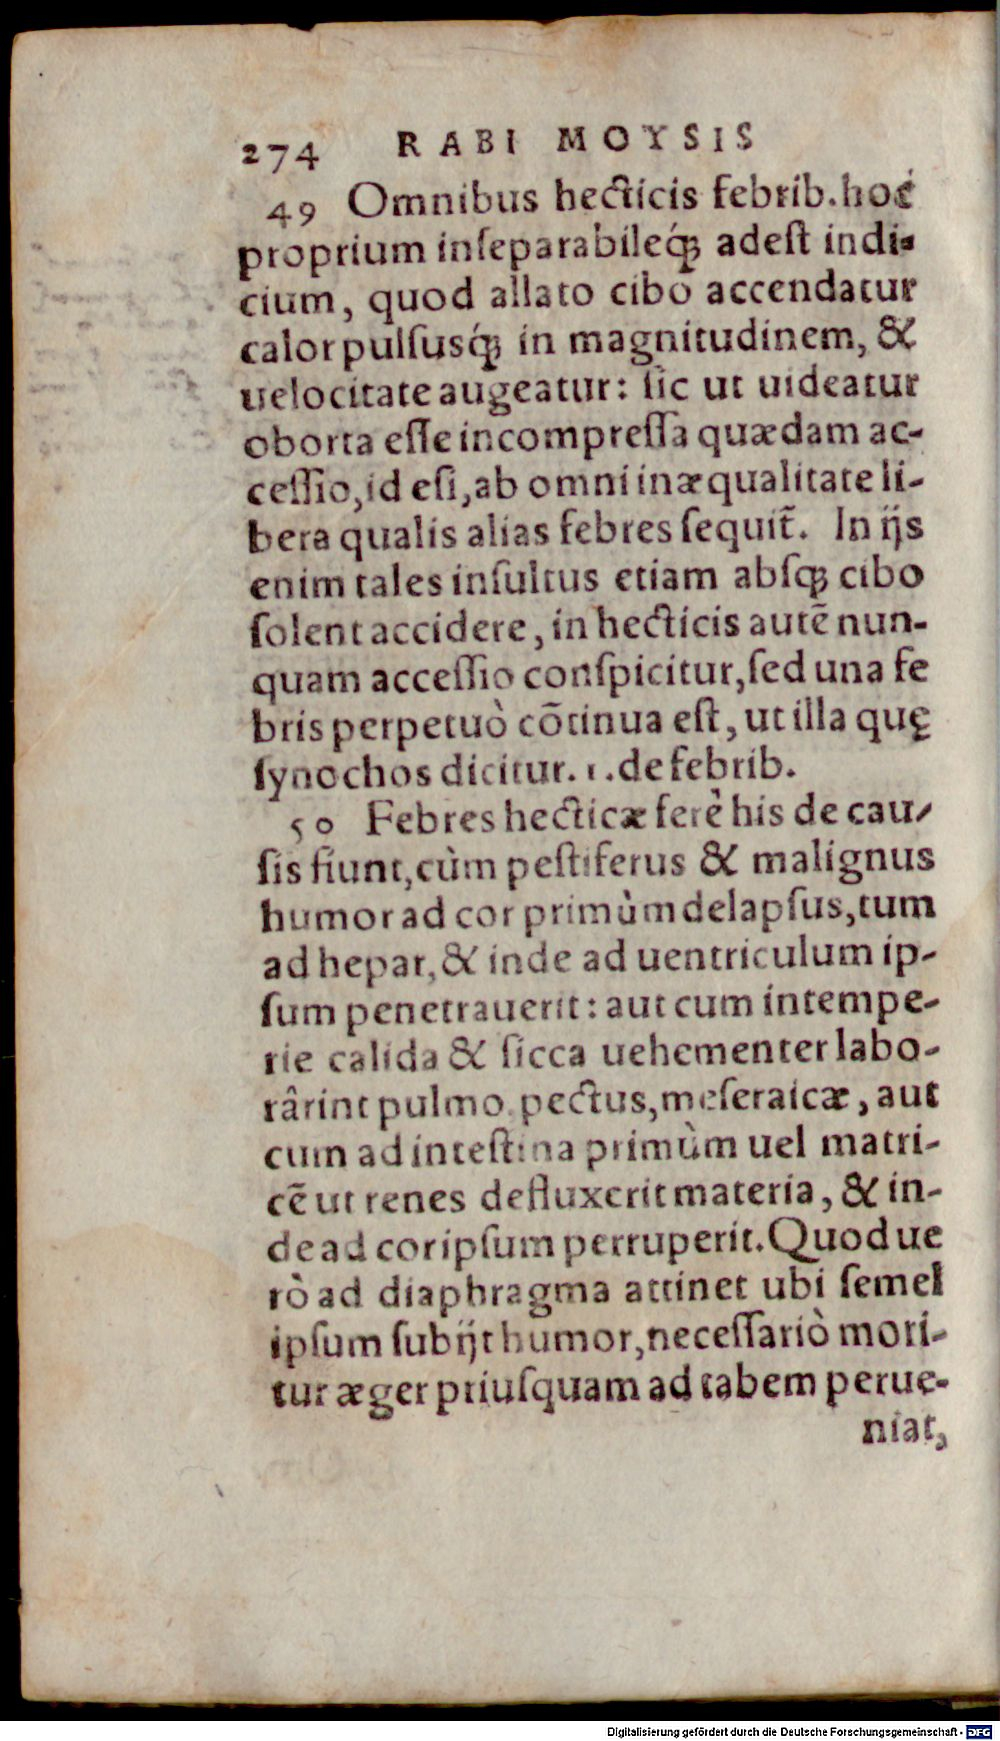 274 RABI MOYSIS
49 Omnibus hecticis febrib. hoc
proprium inſeparabileq́ꝫ adeſt indi-
cium, quod allato cibo accendatur
calor pulſusq́ꝫ in magnitudinem, &
uelocitate augeatur: ſic ut uideatur
oborta eſſe incompreſſa quædam ac-
ceſſio, id eſi, ab omni inæqualitate li-
bera qualis alias febres ſequit̃. In ijs
enim tales inſultus etiam abſqꝫ cibo
ſolent accidere, in hecticis autẽ nun-
quam acceſſio conſpicitur, ſed una fe
bris perpetuò cõtinua eſt, ut illa quę
ſynochos dicitur. 1. de febrib.
50 Febres hecticæ ferè his de cau-
ſis fiunt, cùm peſtiferus & malignus
humor ad cor primùm delapſus, tum
ad hepar, & inde ad uentriculum ip-
ſum penetrauerit: aut cum intempe-
rie calida & ſicca uehementer labo-
rârint pulmo pectus, meſeraicæ, aut
cum ad inteſtina primùm uel matri-
cẽ ut renes defluxerit materia, & in-
de ad cor ipſum perruperit. Quod ue
rò ad diaphragma attinet ubi ſemel
ipſum ſubijt humor, neceſſariò mori-
tur æger priuſquam ad tabem perue-
niat,
Digitalisierung gefördert durch die Deutsche Forschungsgemeinschaft - DFG